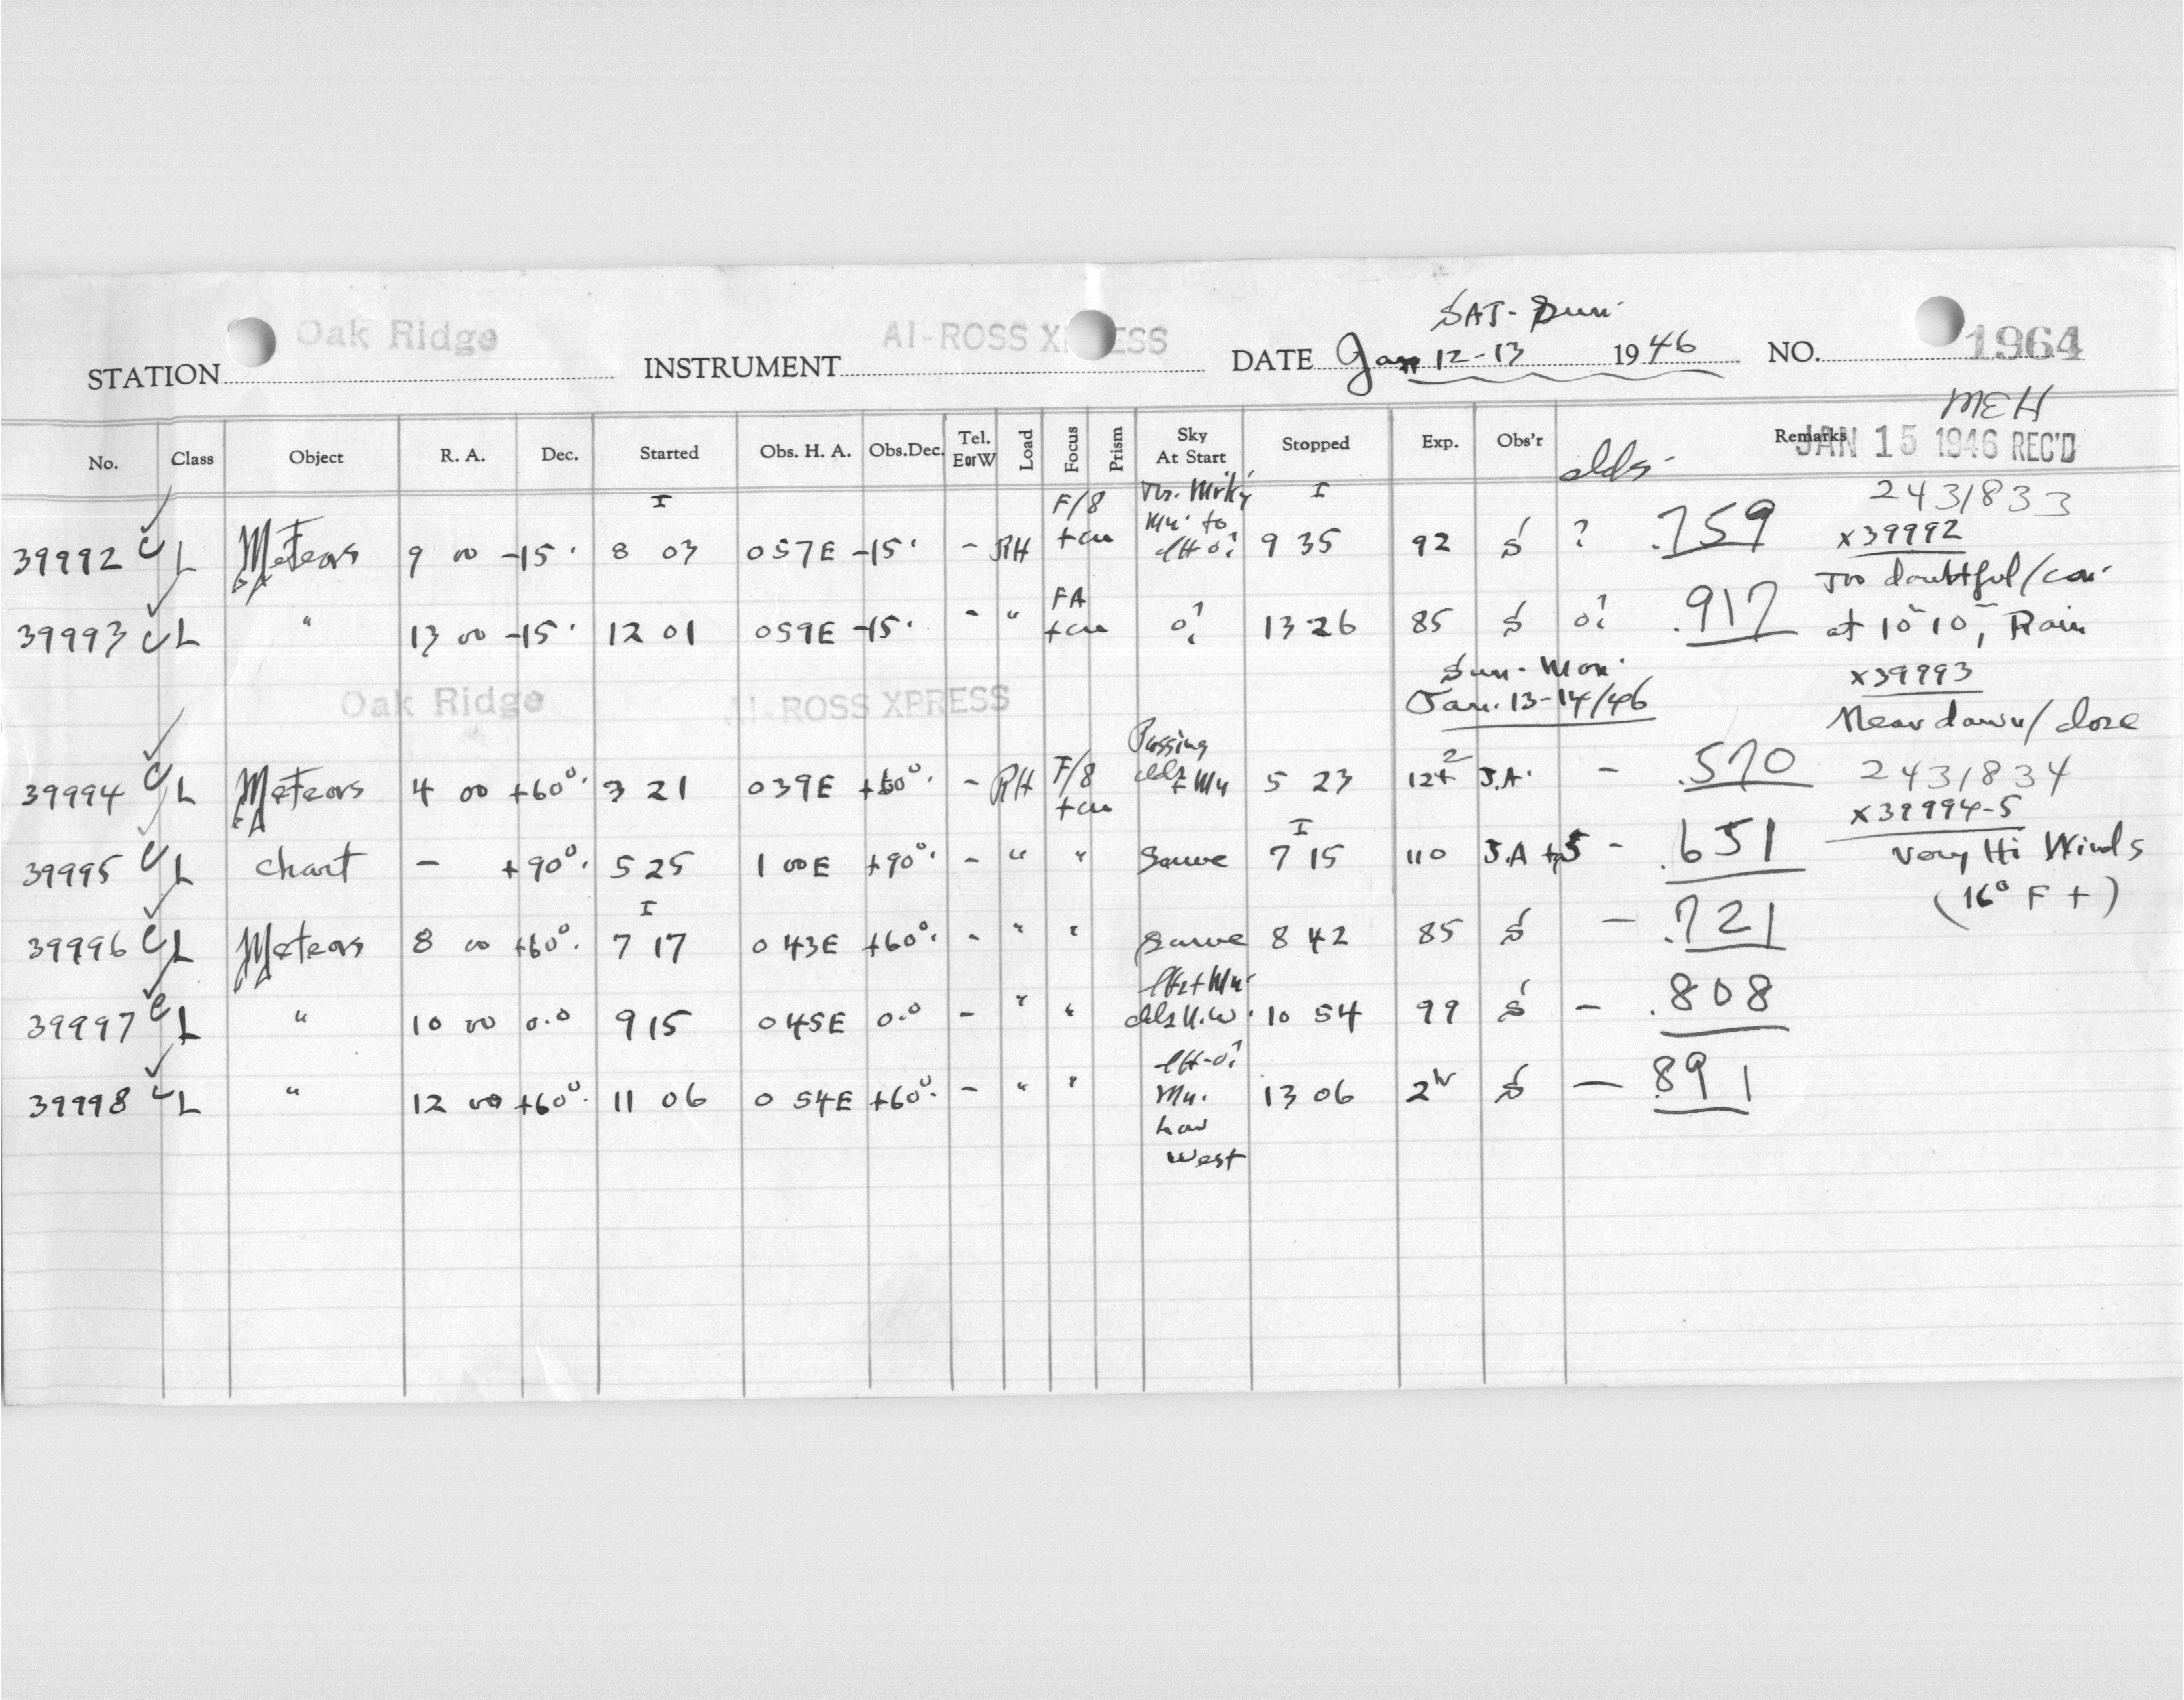 SAT - Sun.
Oak Ridge AI-ROSS XPRESS
STATION INSTRUMENT DATE Jan 12-13 1946 NO. 1964
MEH
No. Class Object R. A. Dec. Started Obs. H. A. Obs. Dec. Tel. E or W Load Focus Prism Sky At Start Stopped Exp. Obs'r clds. Remarks
JAN 15 1946 REC'D
2431833
39992 C L Meteors 9 00 -15° 8 03 I 0 57E -15° - RH F/8 9 35 I 92 S ? .759
x39992
Too doubtful/
at 10 10, Rain
39993 C L " 13 00 -15° 12 01 0 59E -15° - " FA 0? 13 26 85 S 0? .917
x39993
Near dawn/close
Oak Ridge AI-ROSS XPRESS Sun - Mon.
Jan. 13-14/46
39994 C L Meteors 4 00 +60° 3 21 0 39E +60° - RH F/8 Passing clds + Mn 5 23 122 J.A. - .570
2431834
x39994-5
Very Hi Winds
(16° F +)
39995 C L Chart - +90° 5 25 1 00E +90° - " " Same 7 15 I 110 J.A + S - .651
39996 C L Meteors 8 00 +60° 7 17 I 0 43E +60° - " " Same 8 42 85 S - .721
39997 C L " 10 00 0.0 9 15 0 45E 0.0 - " " clds N.W. 10 54 99 S - .808
39998 C L " 12 00 +60° 11 06 0 54E +60° - " " Mn. Low West 13 06 2hr S - .891